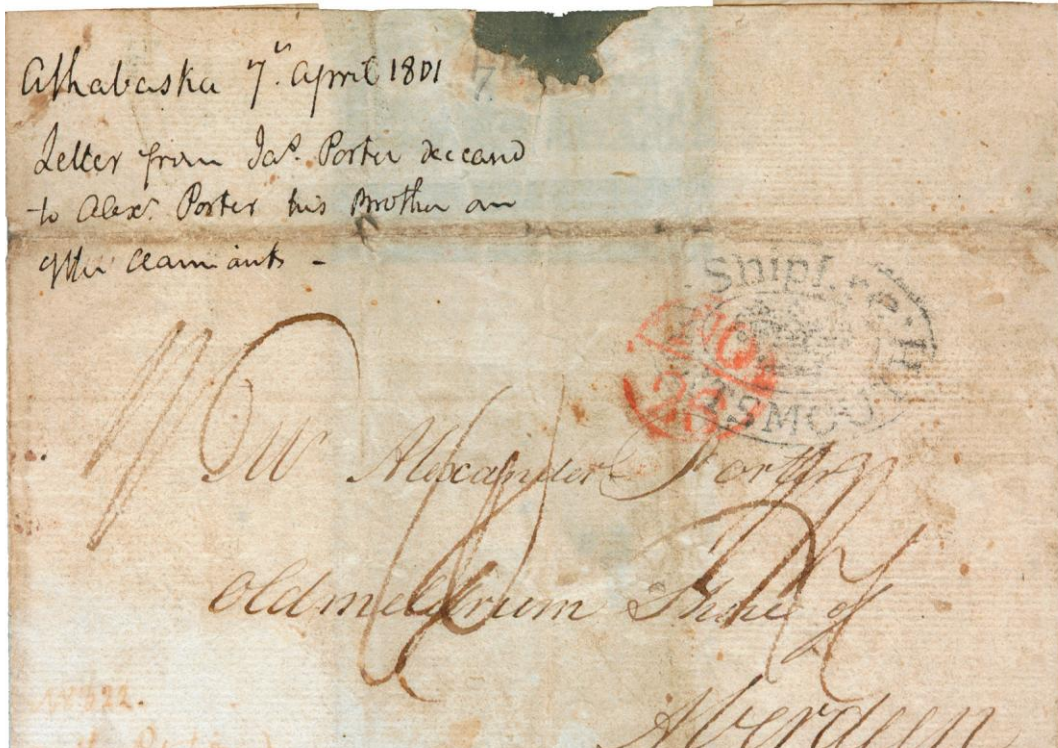 Athabaska 7th April 1801
Letter from Jas. Porter deceasd
to Alexr. Porter his Brother an
of the Claimants -
7
Ship Lre
TSMOUTH
NO
26
Mr Alexander Porter
Oldmeldrum Shire of
Aberdeen